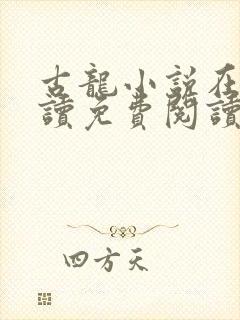 古龍小說在
讀免費閱讀
四方天